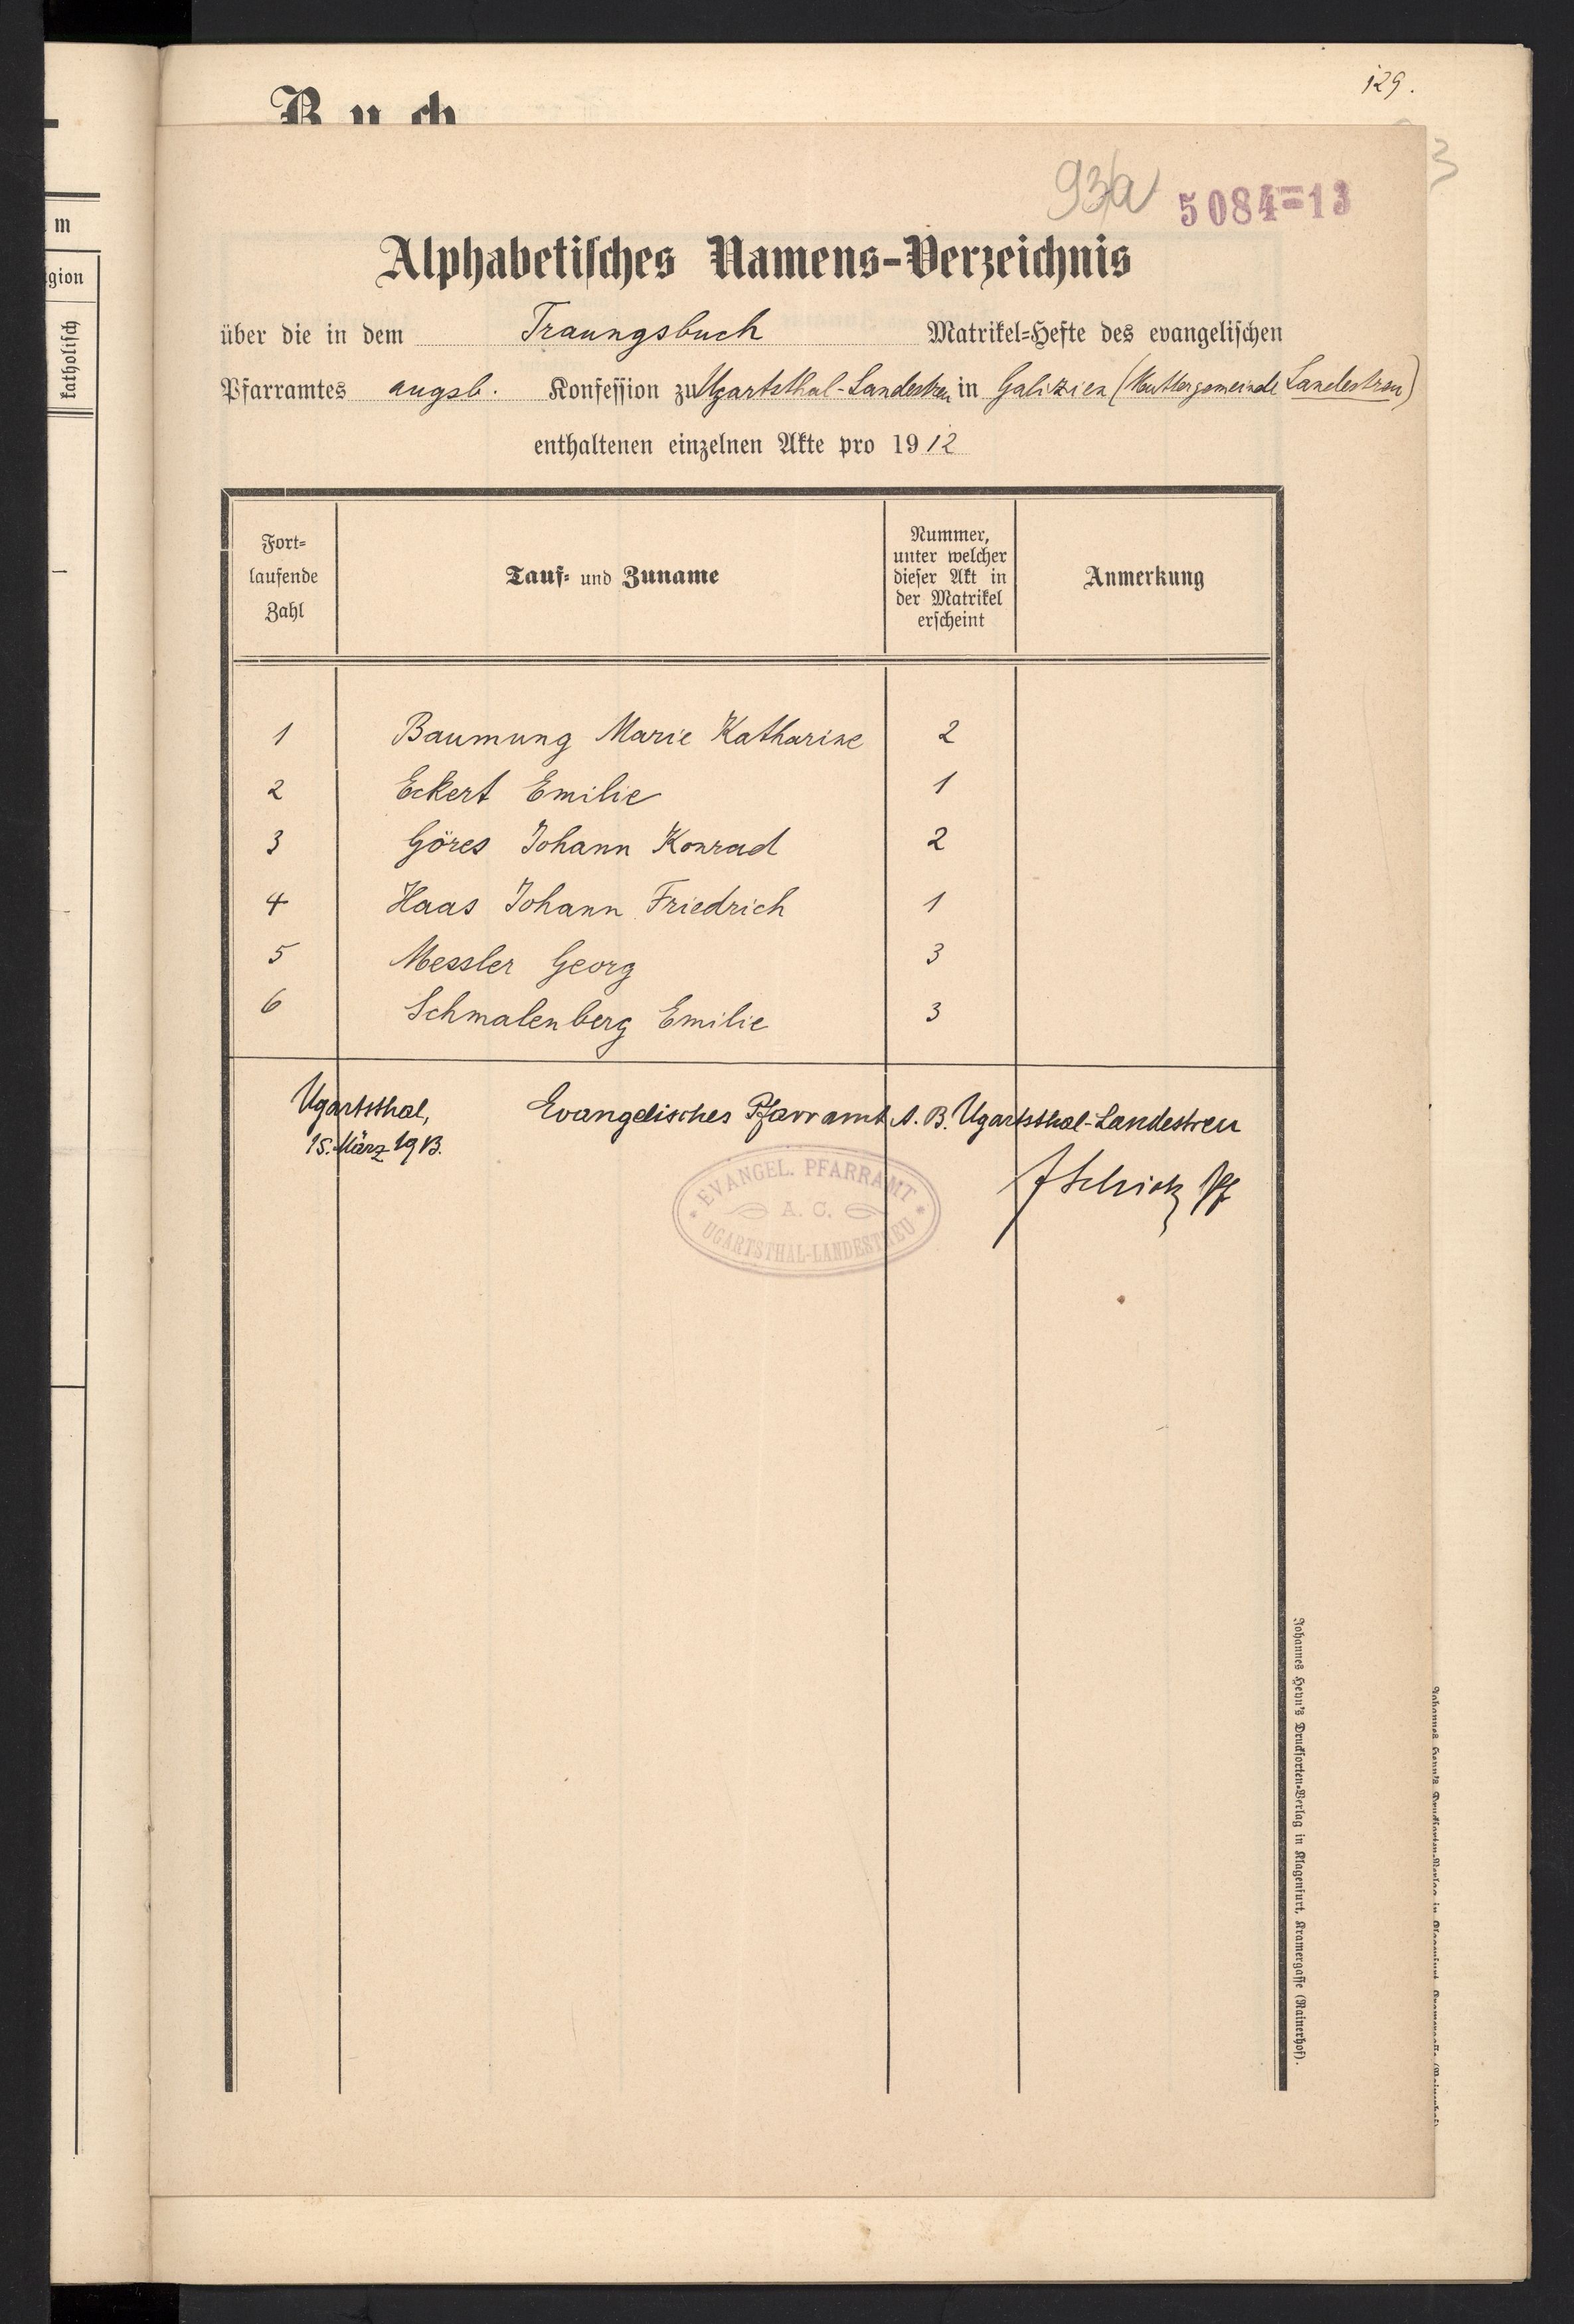 129.
Buch
93/a 5084=13
Alphabetisches Namens-Verzeichnis
über die in dem Trauungsbuch Matrikel-Hefte des evangelischen
Pfarramtes augsb. Konfession zu Ugartsthal-Landestreu in Galizien (Muttergemeinde Landestreu)
enthaltenen einzelnen Akte pro 1912
Fort-
laufende
Zahl
Tauf- und Zuname
Nummer,
unter welcher
dieser Akt in
der Matrikel
erscheint
Anmerkung
1 Baumung Marie Katharine 2
2 Eckert Emilie 1
3 Göres Johann Konrad 2
4 Haas Johann Friedrich 1
5 Messler Georg 3
6 Schmalenberg Emilie 3
Ugartsthal, Evangelisches Pfarramt A. B. Ugartsthal-Landestreu
15. März 1913.
EVANGEL. PFARRAMT
A. C.
UGARTSTHAL-LANDESTREU
Johannes Heyn's Drucksorten-Verlag in Klagenfurt, Kramergasse (Rainerhof).
m
gion
katholisch